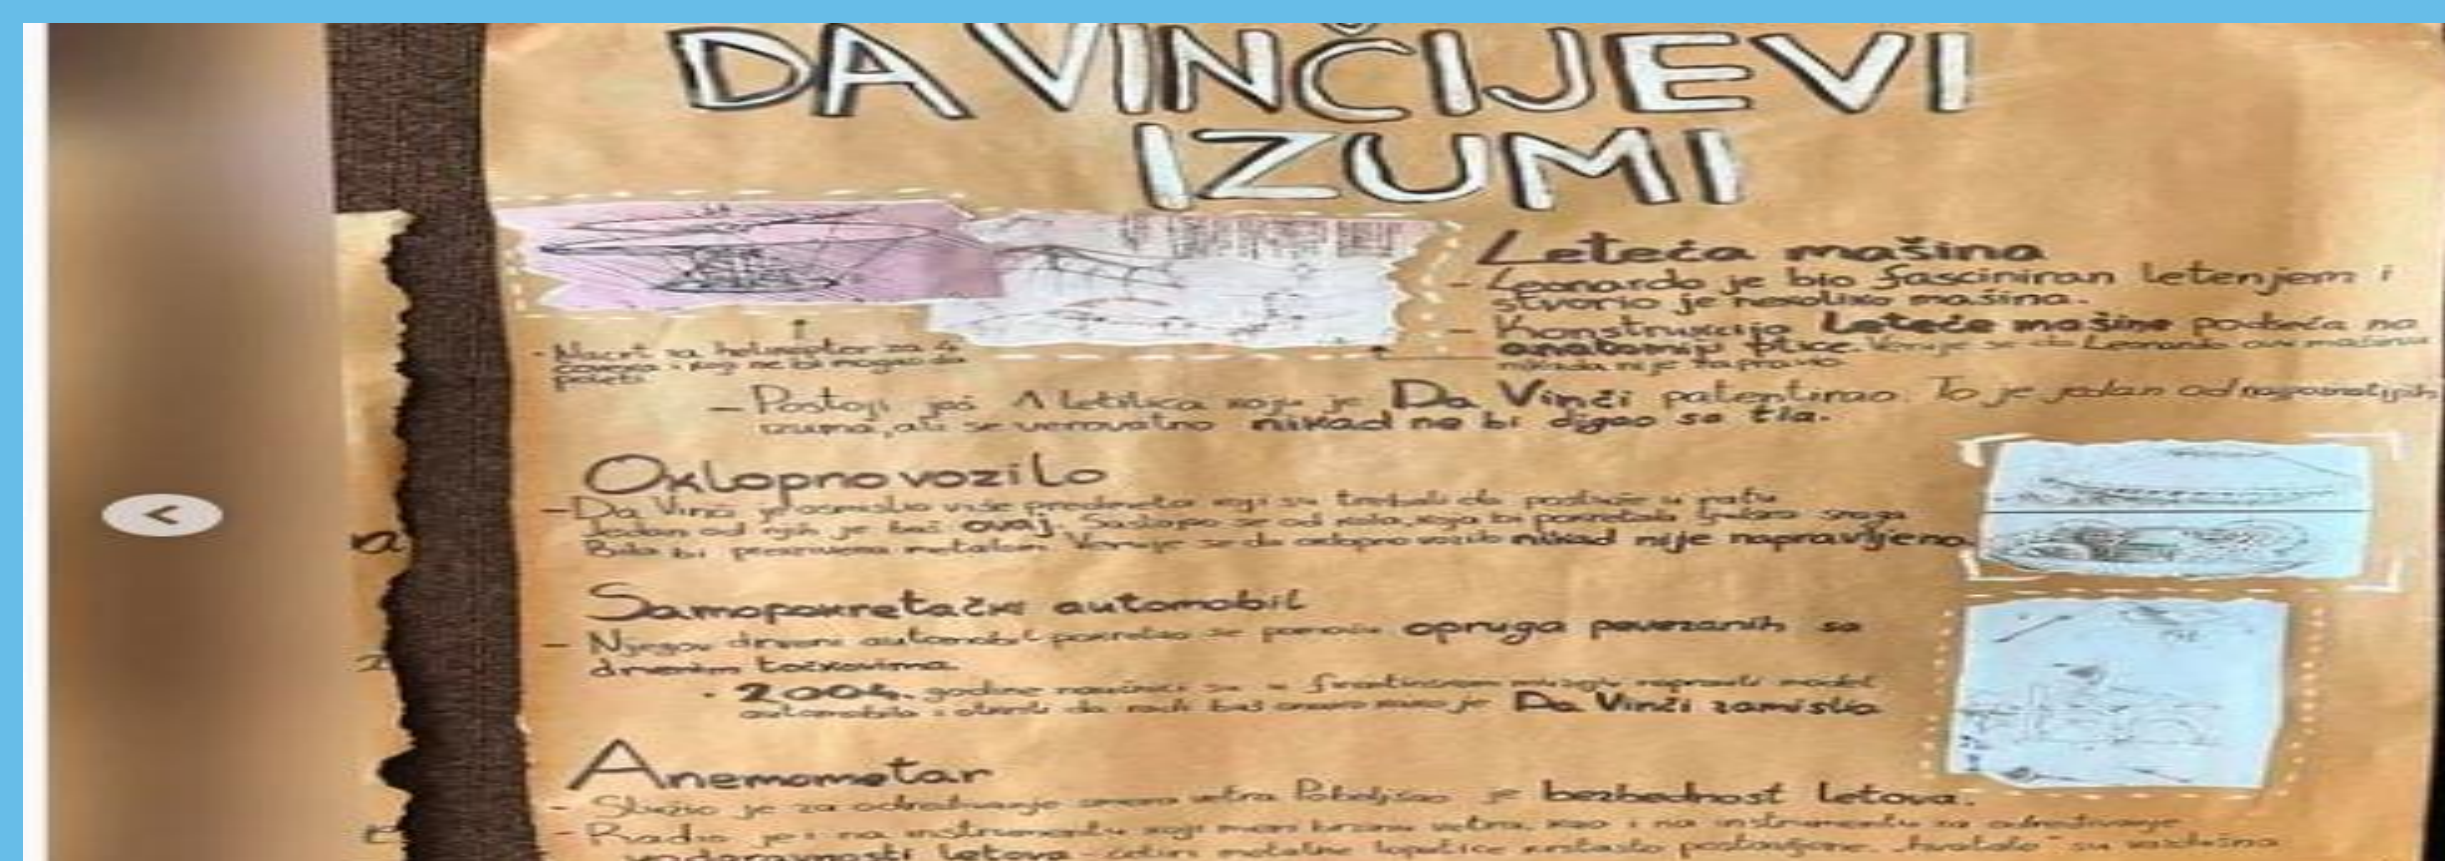 DA VINČIJEVI
IZUMI
Leteća mašina
- Leonardo je bio fasciniran letenjem i
stvorio je nekoliko mašina.
- Konstrukcija leteće mašine podseća na
anatomiju ptice. Veruje se da Leonardo ovu mašinu
nikada nije napravio
- Nacrt za helikopter za 4
čoveka i koji ne bi mogao da
poleti
- Postoji još 1 letilica koju je Da Vinči patentirao. To je jedan od najpoznatijih
izuma, ali se verovatno nikad ne bi digao sa tla.
Oklopno vozilo
- Da Vinči je osmislio više predmeta koji su trebali da posluže u ratu
Jedan od njih je baš ovaj. Sastojao se od kola, koja bi pokretala ljudska snaga
Bila bi prekrivena metalom. Veruje se da oklopno vozilo nikad nije napravljeno
Samopokretački automobil
- Njegov drveni automobil pokretao se pomoću opruga povezanih sa
drvenim točkovima.
2004. godine naučnici su u firentinskom muzeju napravili model
automobila i otkrili da radi baš onako kako je Da Vinči zamislio
Anemometar
- Služio je za određivanje smera vetra Poboljšao je bezbednost letova.
- Radio je i na instrumentu koji meri brzinu vetra, kao i na instrumentu za određivanje
vodoravnosti letova - četiri metalne lopatice krstasto postavljene "hvatale" su vazdušna